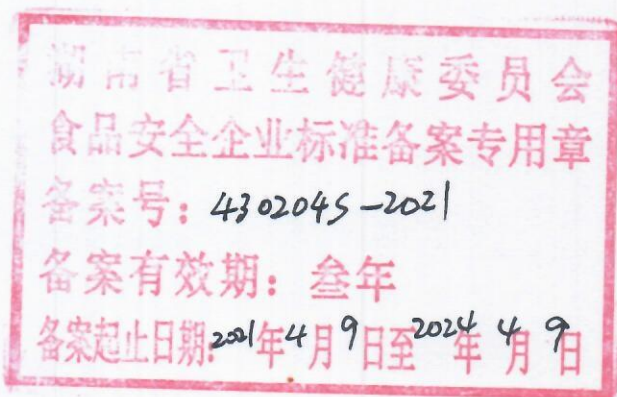 湖南省卫生健康委员会
食品安全企业标准备案专用章
备案号：430204S-2021
备案有效期：叁年
备案起止日期：2021年4月9日至2024年4月9日